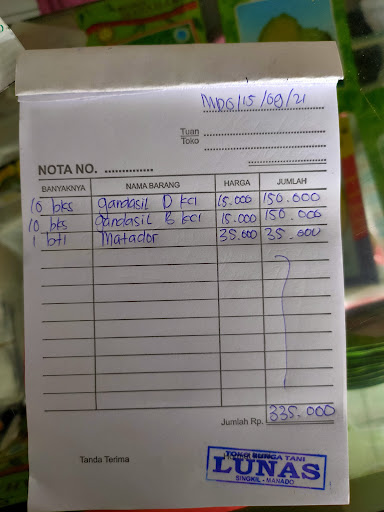 MDO/15/09/21
Tuan
Toko
NOTA NO. ..............
BANYAKNYA NAMA BARANG HARGA JUMLAH
10 bks gandasil D kcl 15.000 150.000
10 bks gandasil B kcl 15.000 150.000
1 btl Matador 35.000 35.000
Jumlah Rp. 335.000
Tanda Terima
TOKO BUNGA TANI
LUNAS
SINGKIL - MANADO